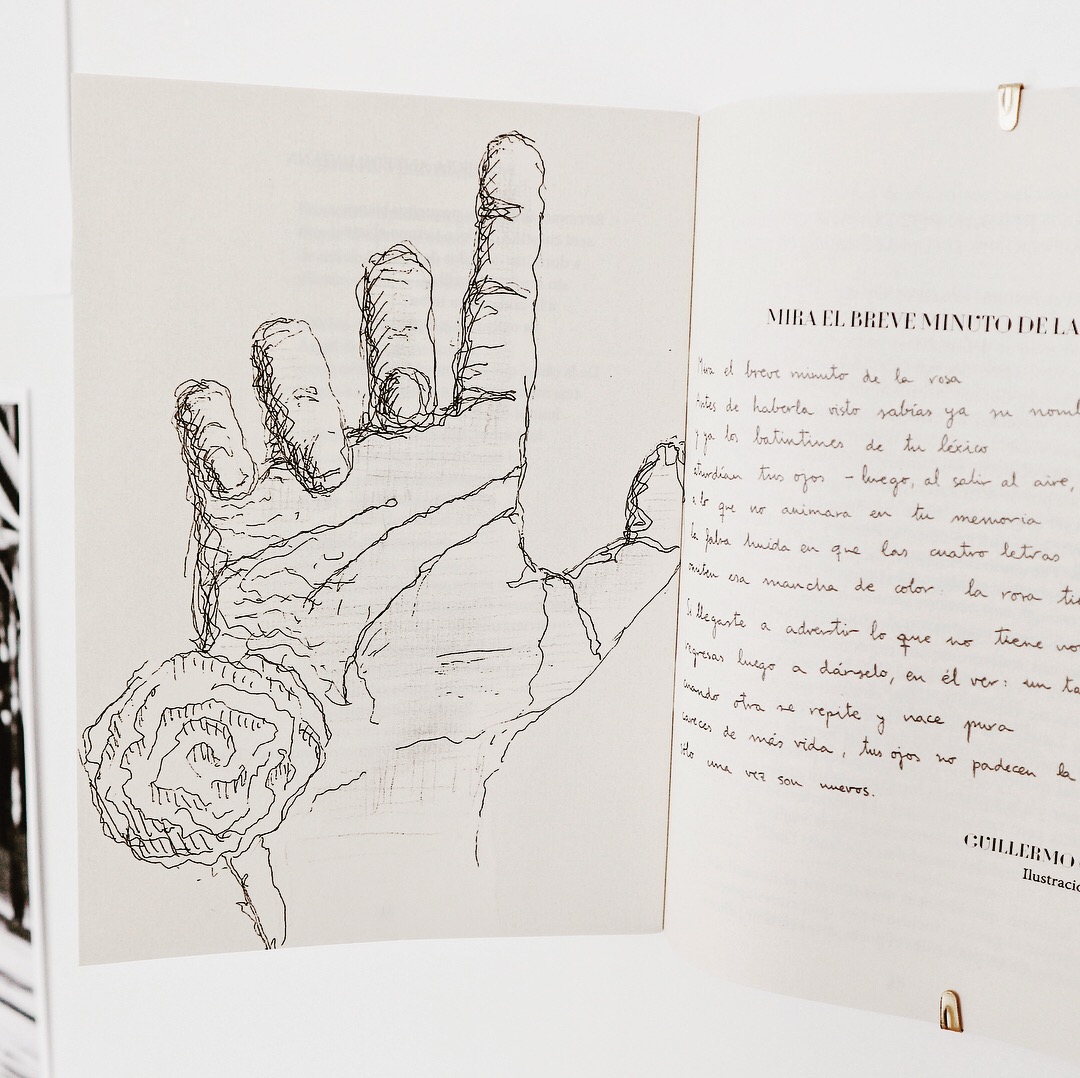 MIRA EL BREVE MINUTO DE LA
Mira el breve minuto de la rosa
Antes de haberla visto sabías ya su nomb
y ya los batintines de tu léxico
aturdían tus ojos – luego, al salir al aire,
a lo que no animara en tu memoria
la falsa huida en que las cuatro letras
omiten esa mancha de color: la rosa
Si llegaste a advertir lo que no tiene
regresas luego a dárselo, en él ver: un
cuando otra se repite y nace pura
careces de más vida, tus ojos no padecen la
sólo una vez son nuevos.
GUILLERMO
Ilustracio